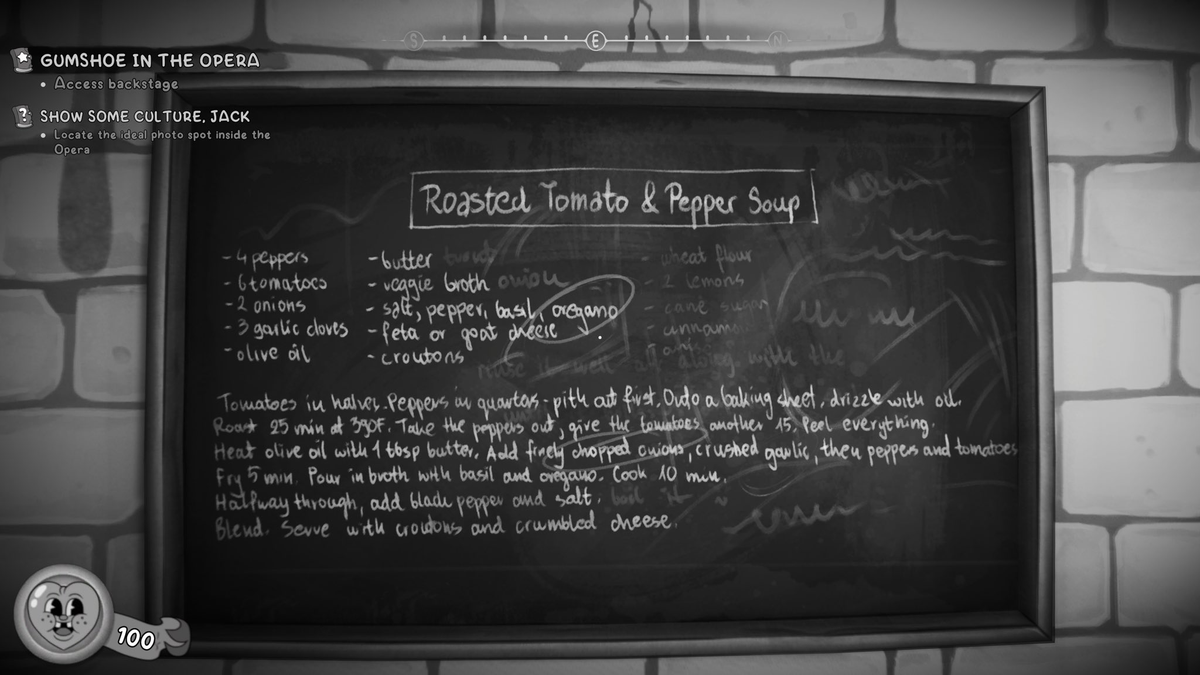 S E N
GUMSHOE IN THE OPERA
Access backstage
SHOW SOME CULTURE, JACK
Locate the ideal photo spot inside the
Opera
Roasted Tomato & Pepper Soup
- 4 peppers
- 6 tomatoes
- 2 onions
- 3 garlic cloves
- olive oil
- butter
- veggie broth onion
- salt, pepper, basil, oregano
- feta or goat cheese
- croutons
- wheat flour
- 2 lemons
- cane sugar
- cinnamon
along with the
Tomatoes in halves. Peppers in quarters - pith out first. Onto a baking sheet, drizzle with oil.
Roast 25 min at 390F. Take the peppers out, give the tomatoes another 15. Peel everything.
Heat olive oil with 1 tbsp butter. Add finely chopped onions, crushed garlic, then peppers and tomatoes
Fry 5 min. Pour in broth with basil and oregano. Cook 10 min.
Halfway through, add black pepper and salt.
Blend. Serve with croutons and crumbled cheese.
100